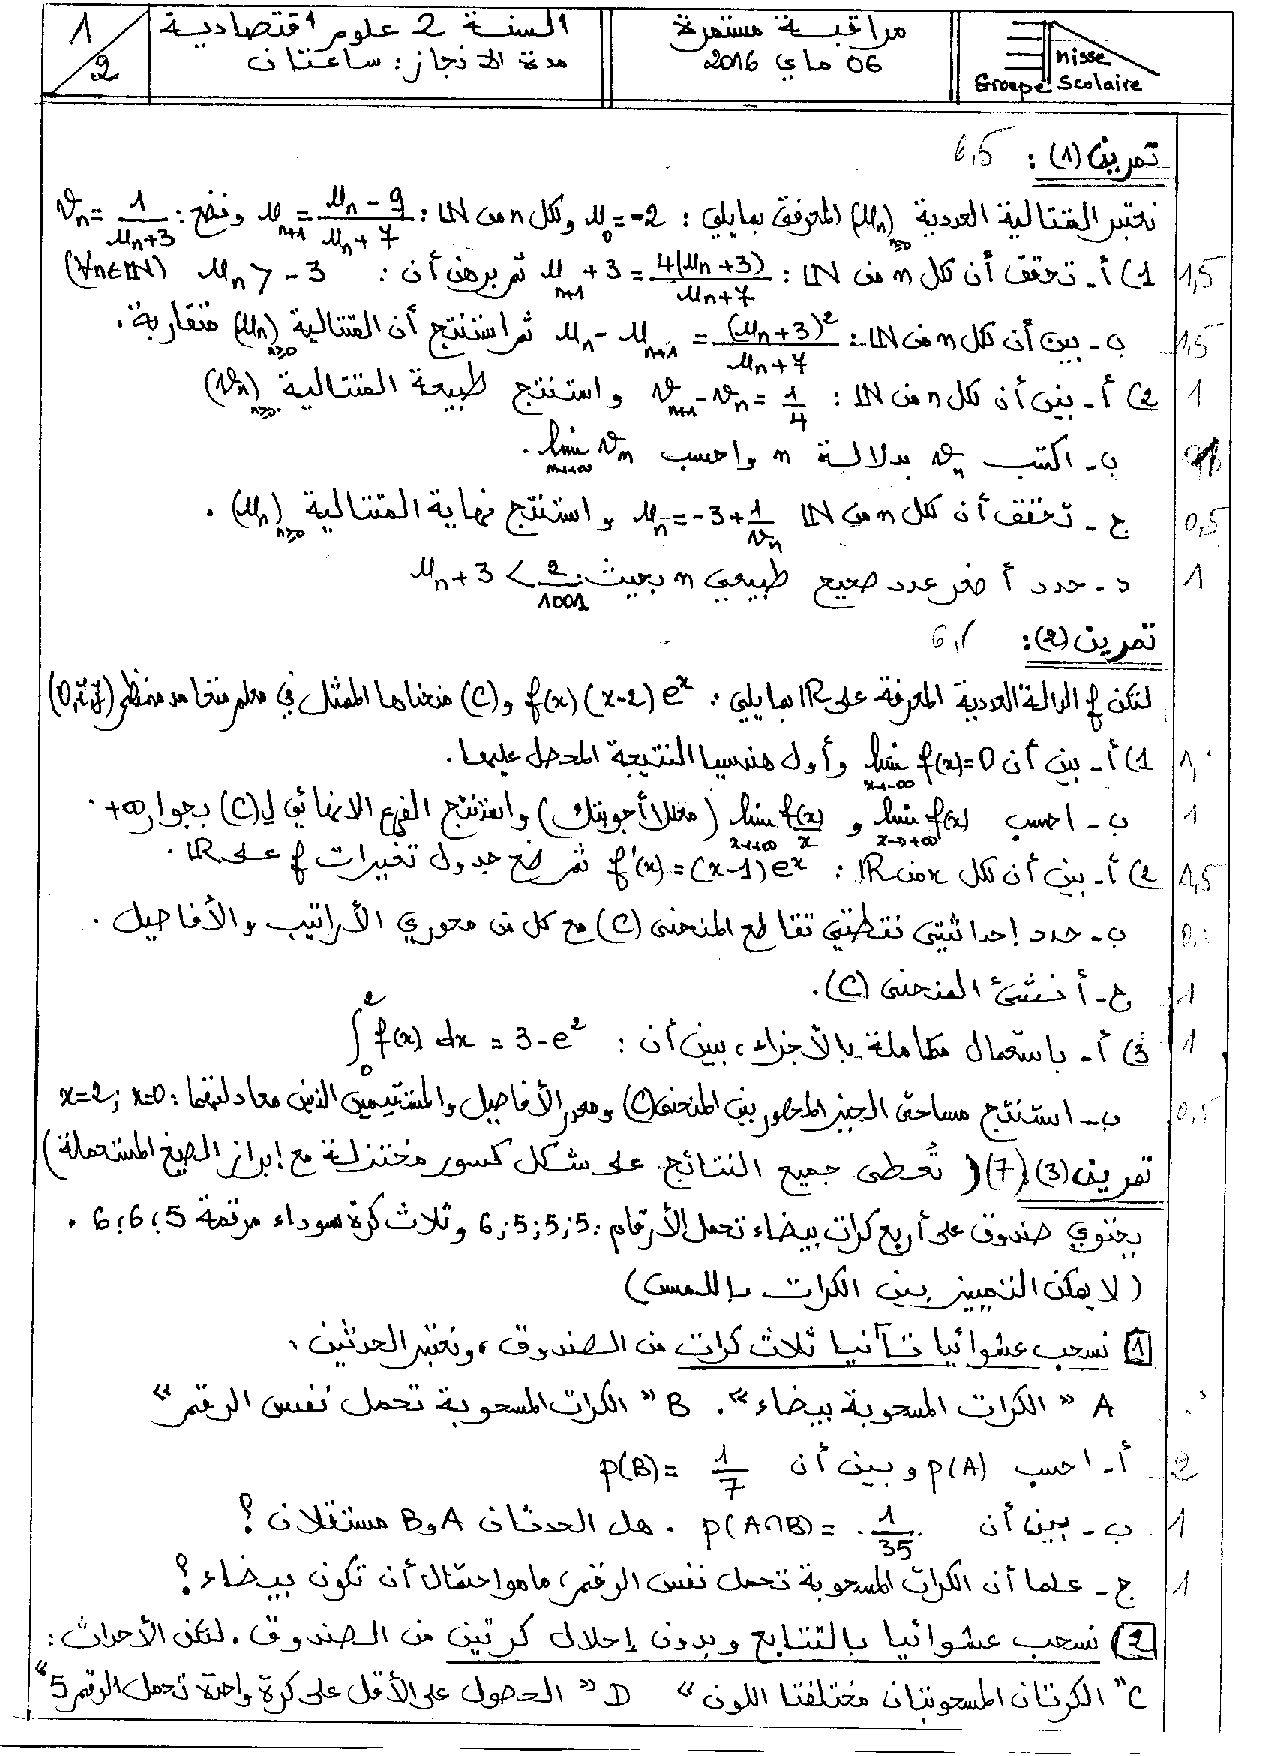 1/2
السنة 2 علوم اقتصادية
مدة الانجاز: ساعتان
مراقبة مستمرة
06 ماي 2016
Anisse
Groupe Scolaire
تمرين (1): 6,5
نعتبر المتتالية العددية (Un)n≥0 المعرفة بما يلي: U0 = -2 ولكل n من IN: Un+1 = (Un - 9)/(Un + 7) ونضع: Vn = 1/(Un+3)
1) أ- تحقق أن لكل n من IN: Un+1 + 3 = 4(Un+3)/(Un+7) ثم برهن أن: Un > -3 (∀n∈IN) 1,5
ب- بين أن لكل n من IN: Un - Un+1 = (Un+3)²/(Un+7) ثم استنتج أن المتتالية (Un)n≥0 متقاربة. 1,5
2) أ- بين أن لكل n من IN: Vn+1 - Vn = 1/4 واستنتج طبيعة المتتالية (Vn)n≥0. 1
ب- اكتب Vn بدلالة n واحسب lim Vn n→+∞. 1
ج- تحقق أن لكل n من IN Un = -3 + 1/Vn واستنتج نهاية المتتالية (Un)n≥0. 0,5
د- حدد أصغر عدد صحيح طبيعي n بحيث: Un + 3 < 2/1001 1
تمرين (2):
لتكن f الدالة العددية المعرفة على IR بما يلي: f(x) (x-2) e^x و (C) منحناها الممثل في معلم متعامد ممنظم (0,i,j)
1) أ- بين أن lim f(x) = 0 x→-∞ وأول هندسيا النتيجة المحصل عليها. 1
ب- احسب lim f(x) x→+∞ و lim f(x)/x x→+∞ (معللا أجوبتك) واستنتج الفرع الانهائي ل(C) بجوار +∞. 1
2) أ- بين أن لكل x من IR: f'(x) = (x-1) e^x ثم ضع جدول تغيرات f على IR. 1,5
ب- حدد إحداثيتي نقطتي تقاطع المنحنى (C) مع كل من محوري الأراتيب والأفاصيل.
ج- أنشئ المنحنى (C). 1
3) أ- باستعمال مكاملة بالأجزاء، بين أن: ∫₀² f(x) dx = 3 - e² 1
ب- استنتج مساحة الحيز المحصور بين المنحنى (C) ومحور الأفاصيل والمستقيمين الذين معادلتهما: x=0 ; x=2 0,5
تمرين (3) (7) (تعطى جميع النتائج على شكل كسور مختزلة مع إبراز الصيغ المستعملة)
يحتوي صندوق على أربع كرات بيضاء تحمل الأرقام: 5;5;5;6 وثلاث كرة سوداء مرقمة 5؛6؛6.
(لا يمكن التمييز بين الكرات باللمس)
1) نسحب عشوائيا تآنيا ثلاث كرات من الصندوق، ونعتبر الحدثين،
A "الكرات المسحوبة بيضاء". B "الكرات المسحوبة تحمل نفس الرقم"
أ- احسب p(A) وبين أن p(B) = 1/7 2
ب- بين أن p(A∩B) = 1/35. هل الحدثان A و B مستقلان؟ 1
ج- علما أن الكرات المسحوبة تحمل نفس الرقم، ما هو احتمال أن تكون بيضاء؟ 1
2) نسحب عشوائيا بالتتابع وبدون إحلال كرتين من الصندوق. لتكن الأحداث:
C "الكرتان المسحوبتان مختلفتا اللون" D "الحصول على الأقل على كرة واحدة تحمل الرقم 5"